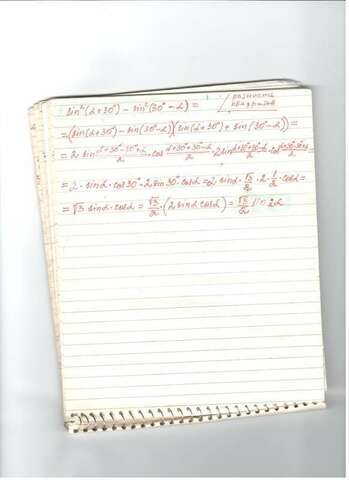 sin²(α+30°) − sin²(30°−α) =
разность квадратов
=(sin(α+30°) − sin(30°−α))(sin(α+30°) + sin(30°−α)) =
=2·sin (α+30°−30°+α)/2 · cos (α+30°+30°−α)/2 · 2sin (α+30°+30°−α)/2 · cos
=2·sinα·cos30°·2sin30°·cosα=2·sinα·√3/2·2·1/2·cosα=
=√3 sinα·cosα = √3/2·(2sinα cosα) = √3/2 sin 2α